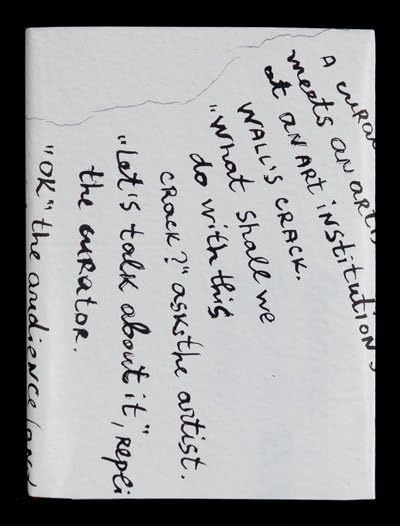 A curat
meets an artis
at an ART institution's
WALL'S CRACK.
"What shall we
do with this
crack?" asks the artist.
"Let's talk about it", repli
the curator.
"OK" the audience (and